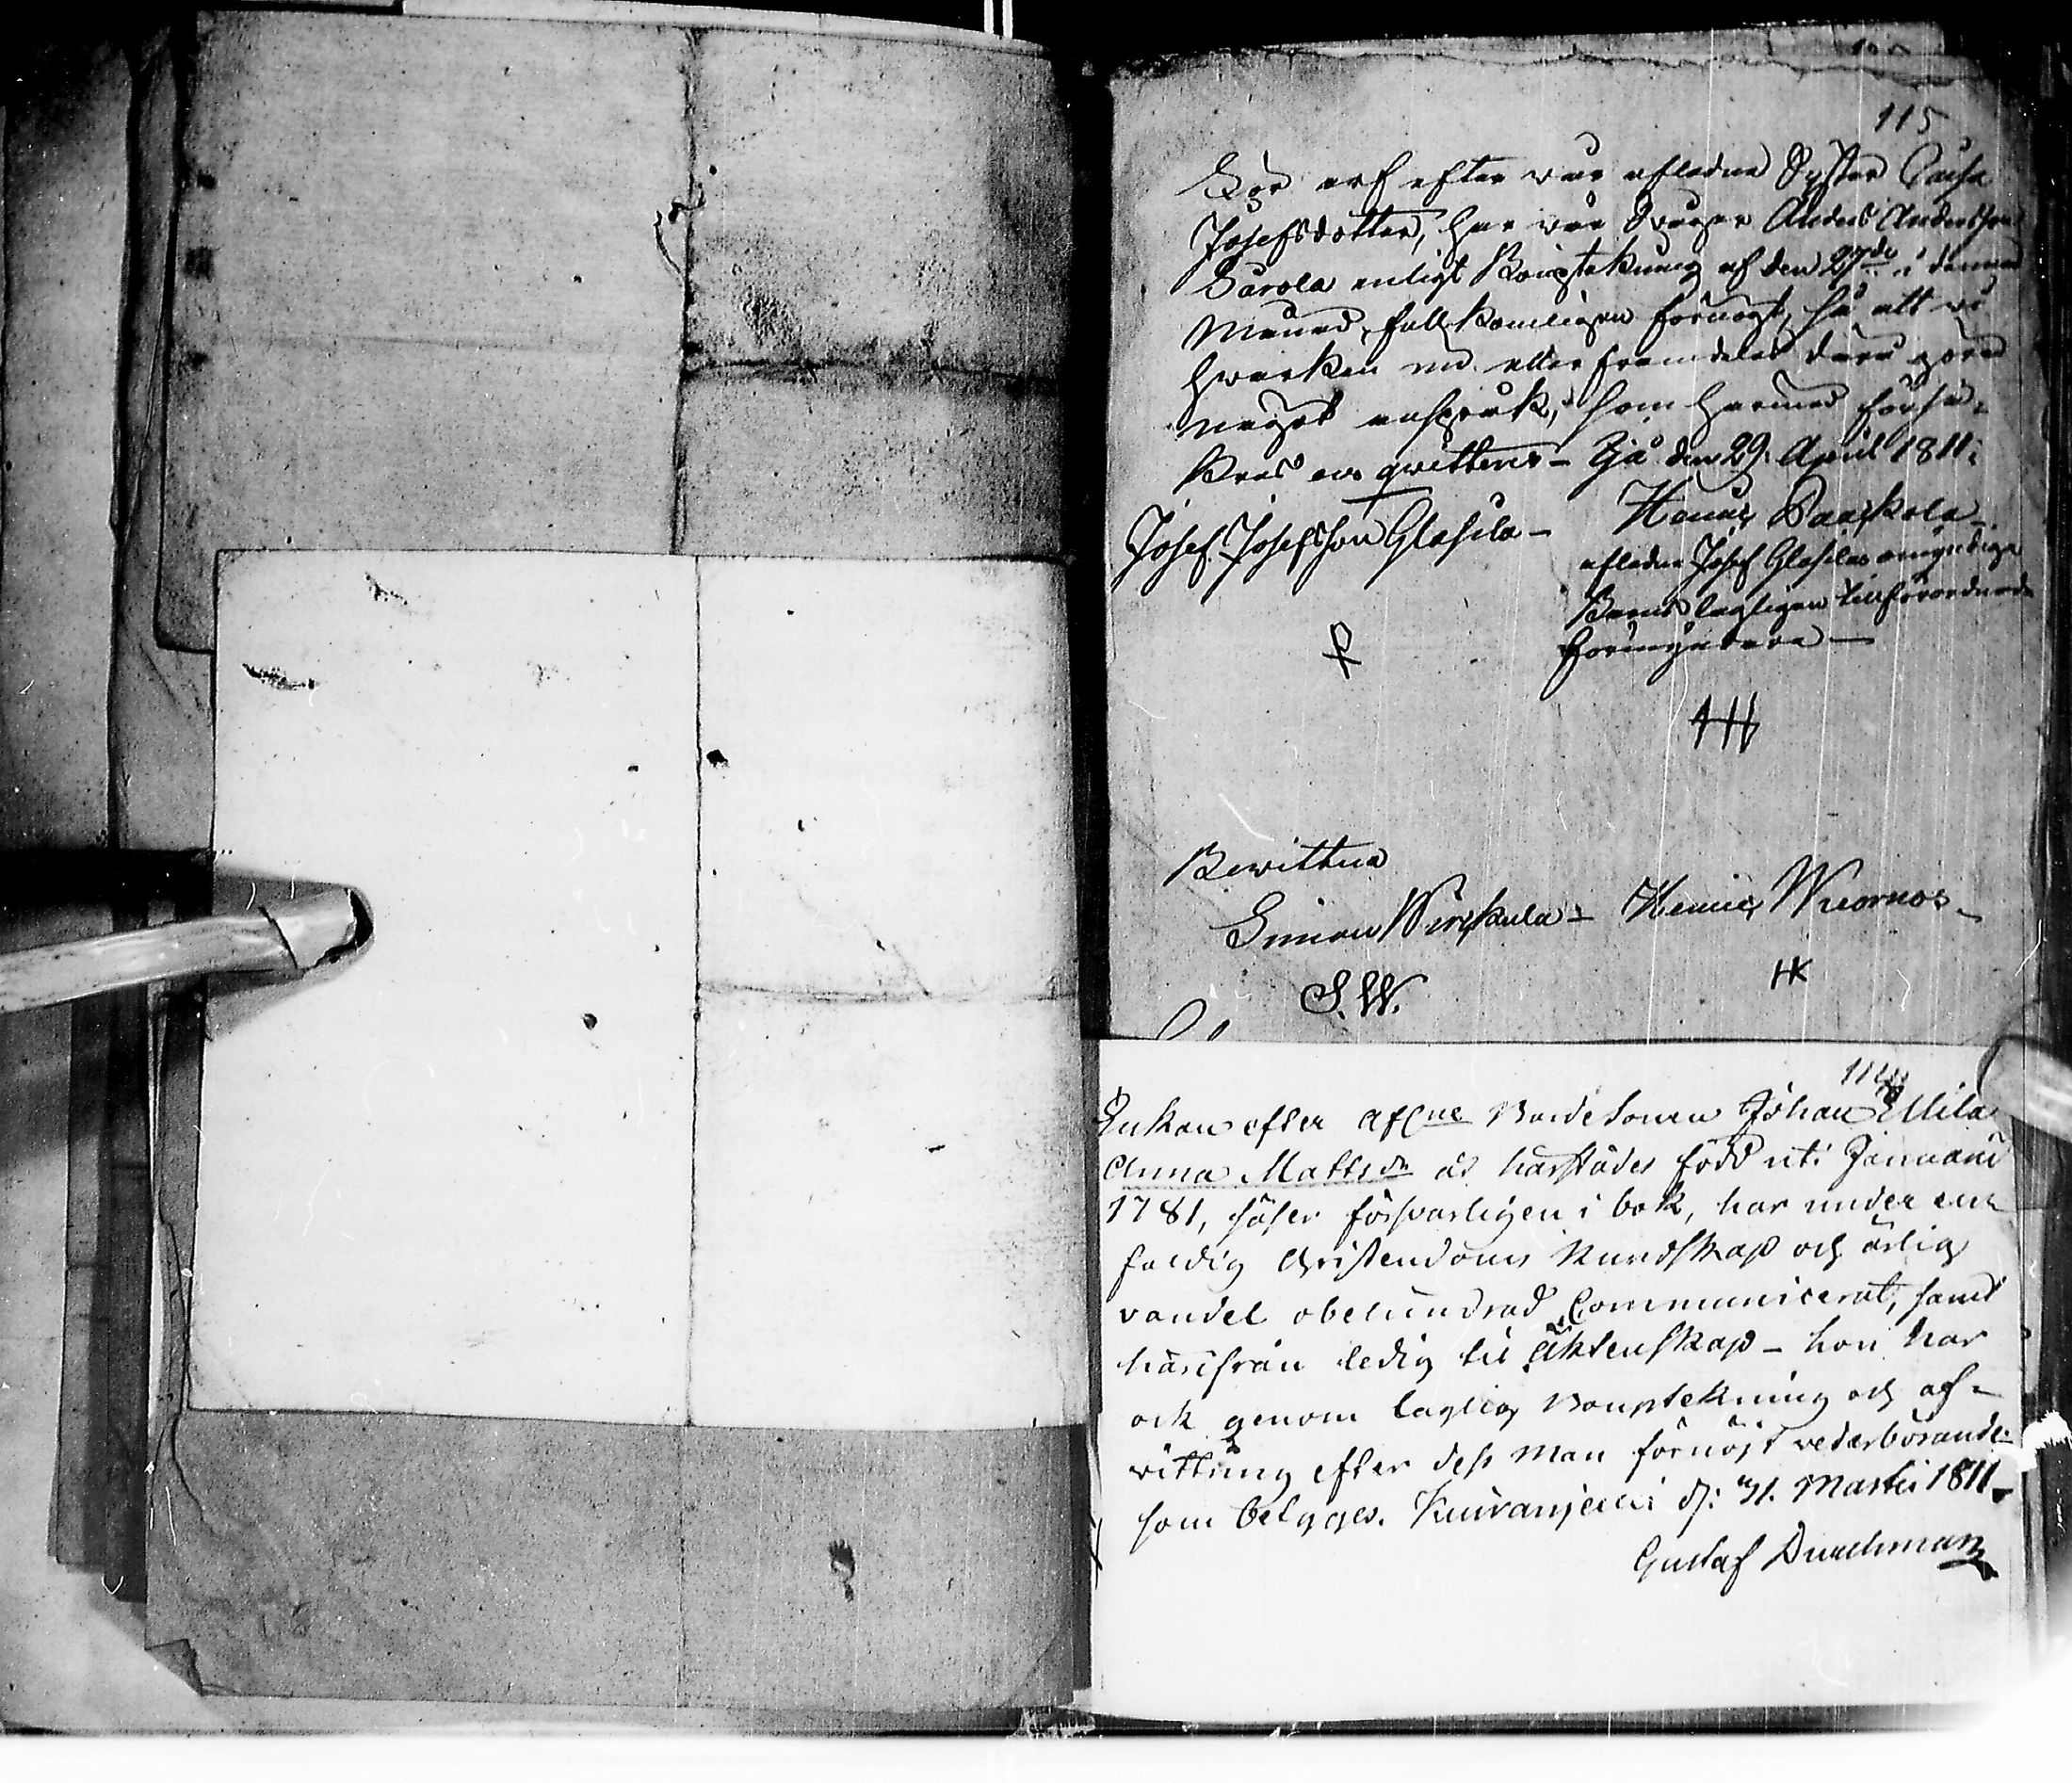 115
För arf efter vår afledne Syster Caisa
Josefsdotter, har vår Svåger Anders Andersson
Sarola enligt Bouptekning af den 27de i denna
Månad, fullkomligen förnögt, så att vi
hwarken nu eller framdeles derå göra
något anspråk, som härmed försä-
kras och qvitteras. Ijå den 29. April 1811.
Josef Josefsson Glasila - Henric Paaskola
afledne Josef Glasilas omyndiga
Barns lagligen tillförordnade
Förmyndare -
Bewittna
Simon Wirkula - Henric Wuornos -
S.W. HK
114
Enkan efter aflne Bondesonen Johan Ellila
Anna Mattsdr är härstädes född uti Januari
1781, läser försvarligen i bok, har under en-
faldig Christendoms kundskap och ärlig
vandel obehindrad Communicerat, samt
härifrån ledig til äktenskap - hon har
ock genom laglig Bouptekning och af-
vittring efter dess Man förnöjt vederbörande
som betygges. Kuivaniemi d: 31. Martii 1811.
Gustaf Durchman